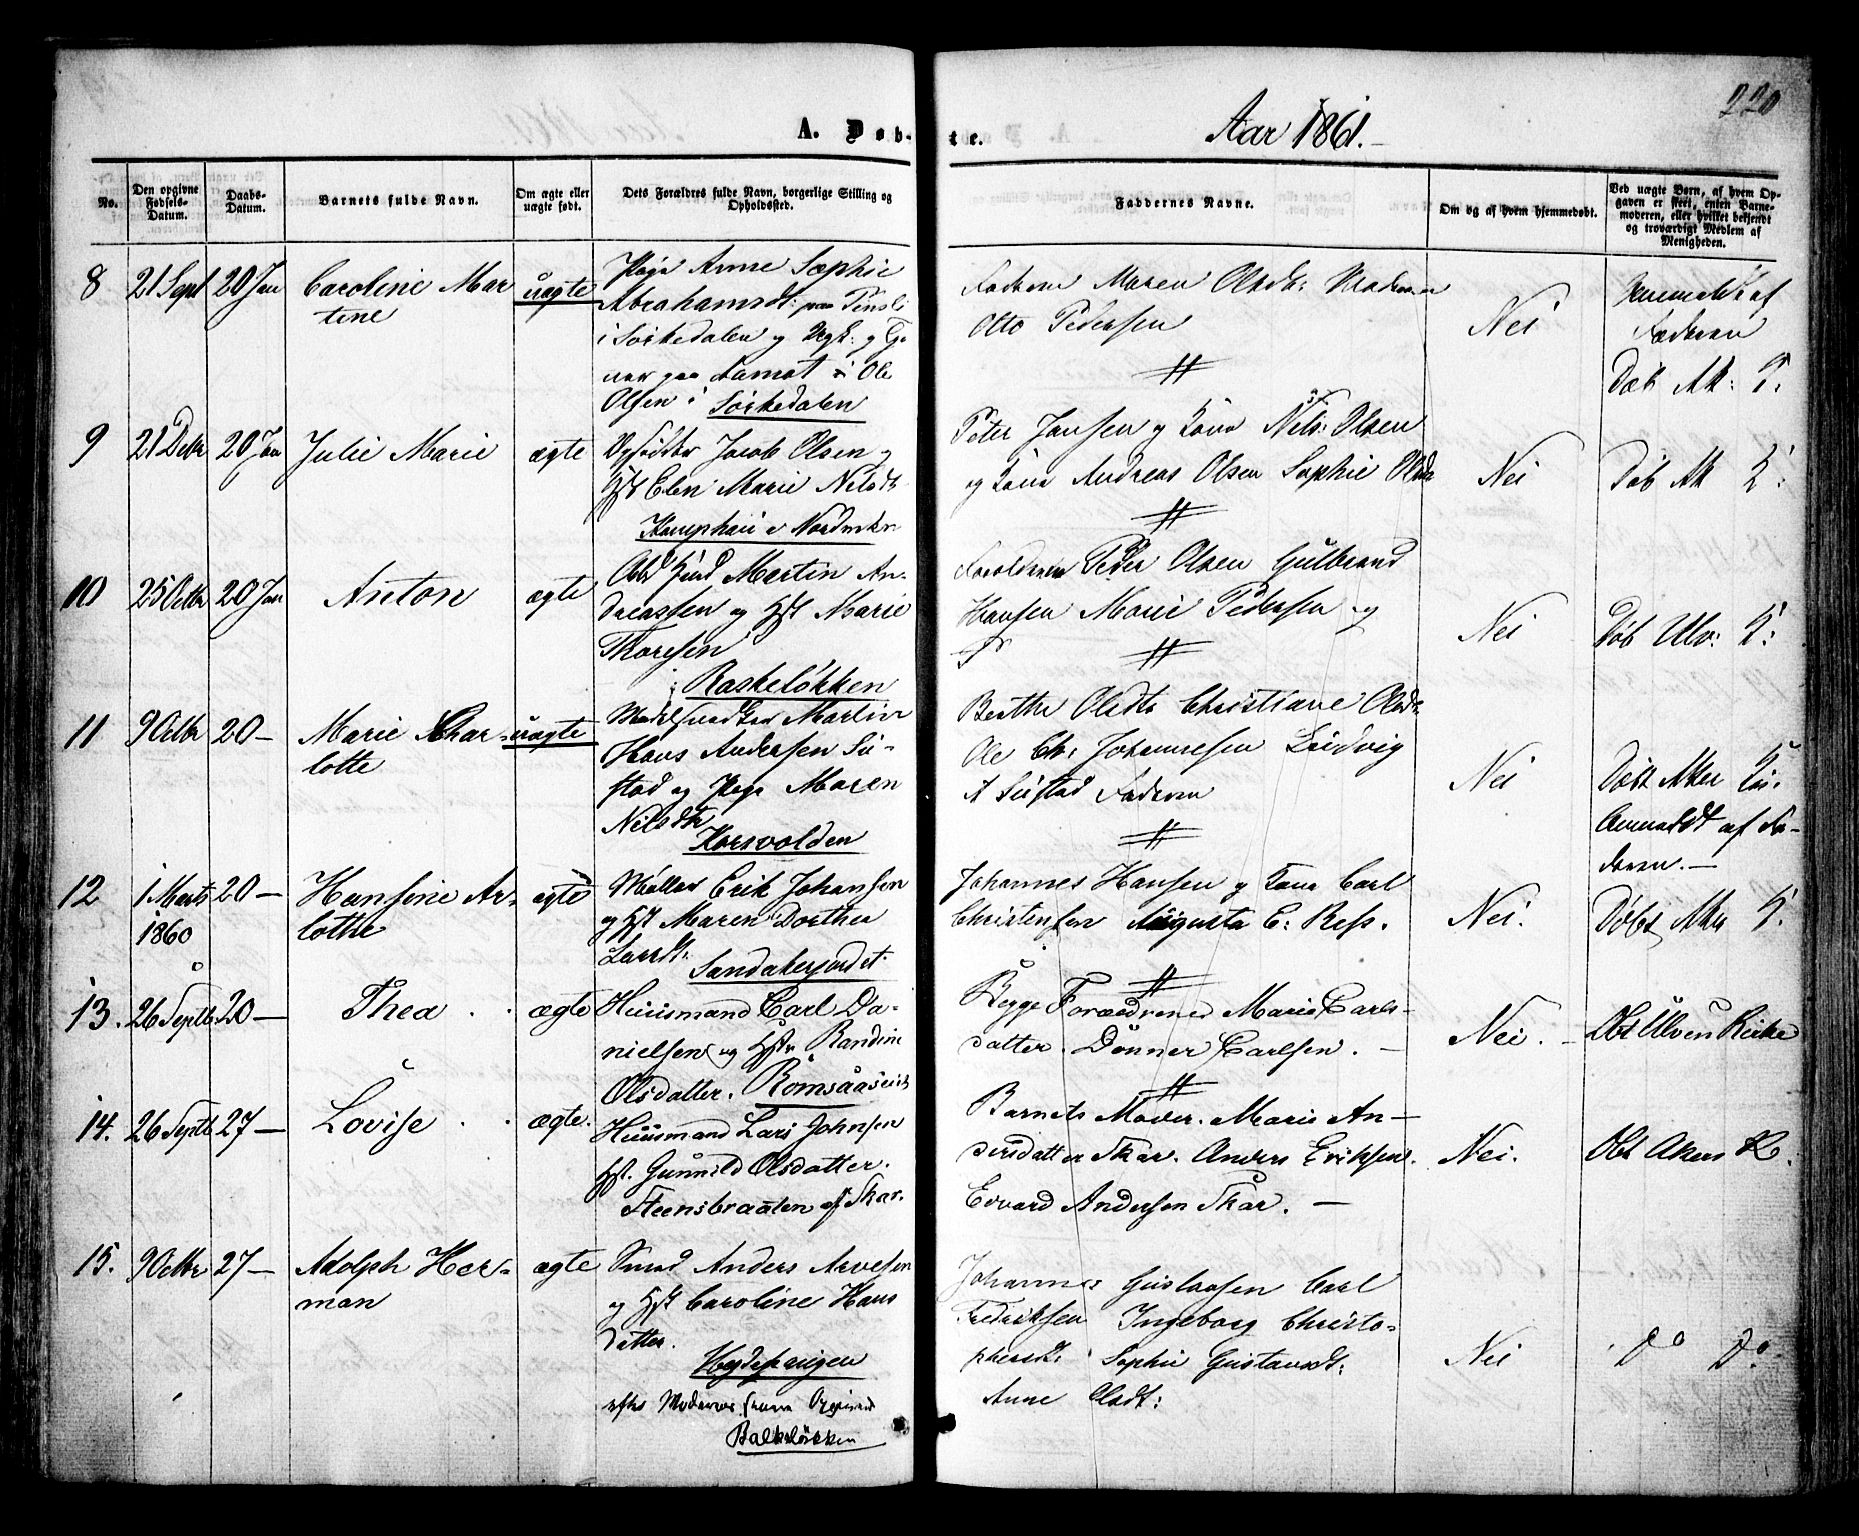 220
A. Døb-
te.
Aar 1861.-
No.
Den opgivne Fødsels-Datum.
Daabs-Datum.
Barnets fulde Navn.
Om ægte eller uægte født.
Dets Forældres fulde Navn, borgerlige Stilling og Opholdssted.
Faddernes Navne.
Om og af hvem hjemmedøbt.
Ved uægte Børn, af hvem Op-
gaven er skeet, enten Barne-
moderen, eller hvilket bekjendt
og troværdigt Medlem af
Menigheden.
8 21 Sept 20 Jan Caroline Mar
tine
uægte
Pige Anne Sophie
Abrahamsdt: paa
i Sørkedalen og Ungk:
paa Aamot i Ole
Olsen i Sørkedalen
Faderen Maren Olsdt: Moderen
Otto Pedersen
Nei
Anmeldt af
Faderen
Døb Ak: K:
9 21 Debr 20 Jan Julie Marie
ægte
Opsidder Jacob Olsen og
Hst Elen Marie Nilsdtr
Kamphoug i Nordmkn
Peter Jansen og Kone Nils Olsen
og Kone Andreas Olsen Sophie Olsdr
Nei
Døb Ak K:
10 25 Octbr 20 Jan Anton
ægte
Martin An-
dreassen og Hst Marie
Thoresen
i Raskeløkken
Forældrene Peder Olsen Gulbrand
Hansen Marie Pedersen og
Nei
Døb Ulv: K:
11 9 Octbr 20- Marie Char-
lotte
uægte
Martin
Hans Andersen Sü-
stad og Pige Maren
Nilsdtr
Korsvolden
Berthe Olsdtr Christiane Olsdr
Ole Chr Johannesen Ludvig
A Süstad Faderen
Nei
Døbt Aker Ki:
Anmeldt af Fa-
deren.-
12 1 Marts 1860 20- Hansine Ar-
lotte
ægte
Møller Erik Johansen
og Hst Maren Dorthea
Larsdt:
Sandakerjordet
Johannes Hansen og Kone Carl
Christensen Augusta C: Ress.
Nei.
Døbt Aker K.
13. 26 Septb 20- Thea
ægte
Huusmand Carl Da-
nielsen og Hstr Randine
Olsdatter. Romsaaseie
Begge Forældrene Marie Carls-
datter. Dønner Carlsen.-
Nei.-
Dbt Ulven Kirke
14. 26 Septb 27- Lovise
ægte.
Huusmand Lars Johnsen
Hst. Gunnild Olsdatter.
Steensbraaten af Skar.
Barnets Moder. Marie An-
dersdatter Skar. Anders Eriksen.
Edvard Andersen Skar.-
Nei.
Dbt Akers K.
15. 9 Octbr 27- Adolph Her-
man
ægte
Smed Anders Arvesen
og Hst Caroline Hans
Datter.
Hegdehaugen
efter Moderens senere Opgivend
Balkeløkken
Johannes Gustavsen Carl
Fredriksen Ingeborg Christo-
phersdt: Sophie Gustavsdt:
Anne Olsdt:
Nei
Do Do